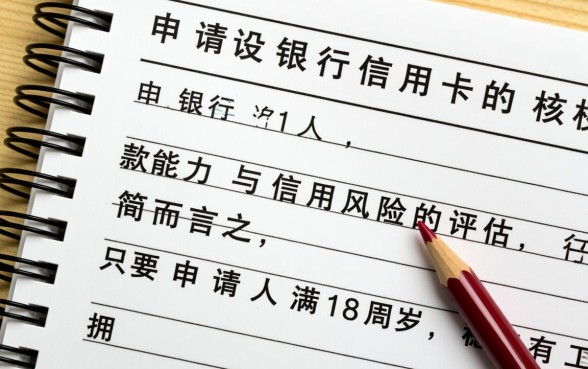 申请设银行信用卡的 核
申 银行 1人，
款能力 与信用风险的评估，行
简而言之，
只要 申请人 满18周岁， 有工
拥